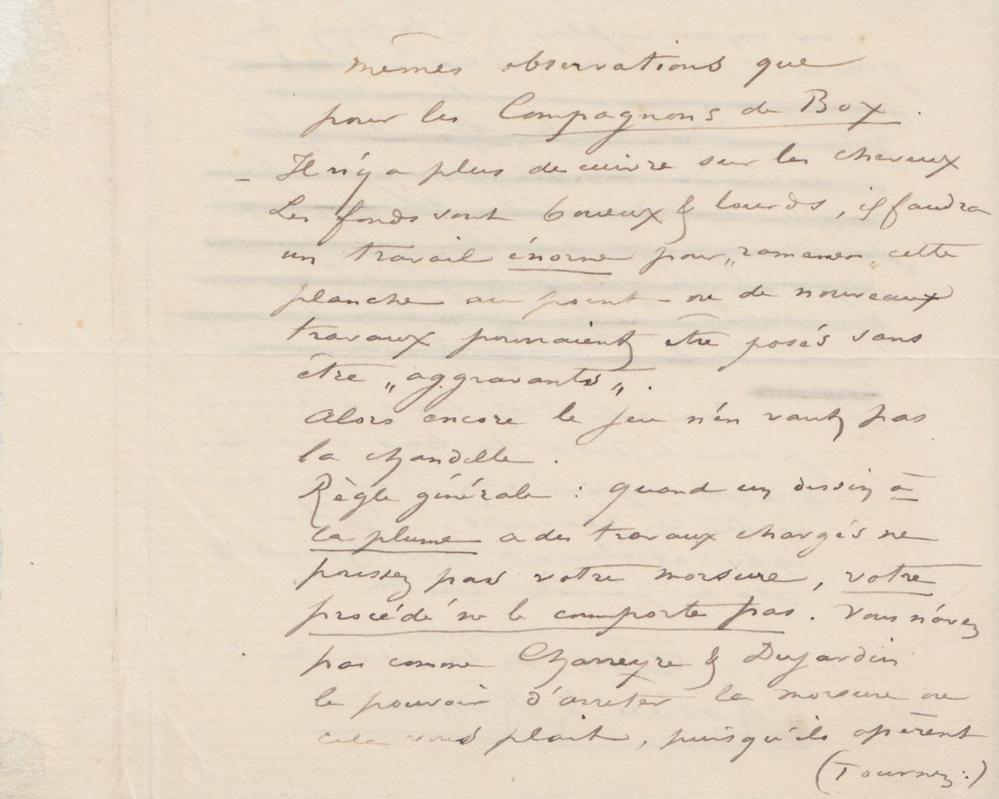 mêmes observations que
pour les Compagnons de Box.
- Il n'y a plus de cuivre sur les cheveux
Les fonds sont boueux & lourds, il faudra
un travail énorme pour „ramener„ cette
planche au point - où de nouveaux
travaux pourraient être posés sans
être „aggravants„.
Alors encore le jeu n'en vaut pas
la chandelle.
Règle générale : quand un dessin à
la plume a des travaux chargés ne
poussez pas votre morsure, votre
procédé ne le comporte pas. Vous n'avez
pas comme Charreyre & Dujardin
le pouvoir d'arrêter la morsure où
cela vous plait, puisqu'ils opèrent
(Tournez :)